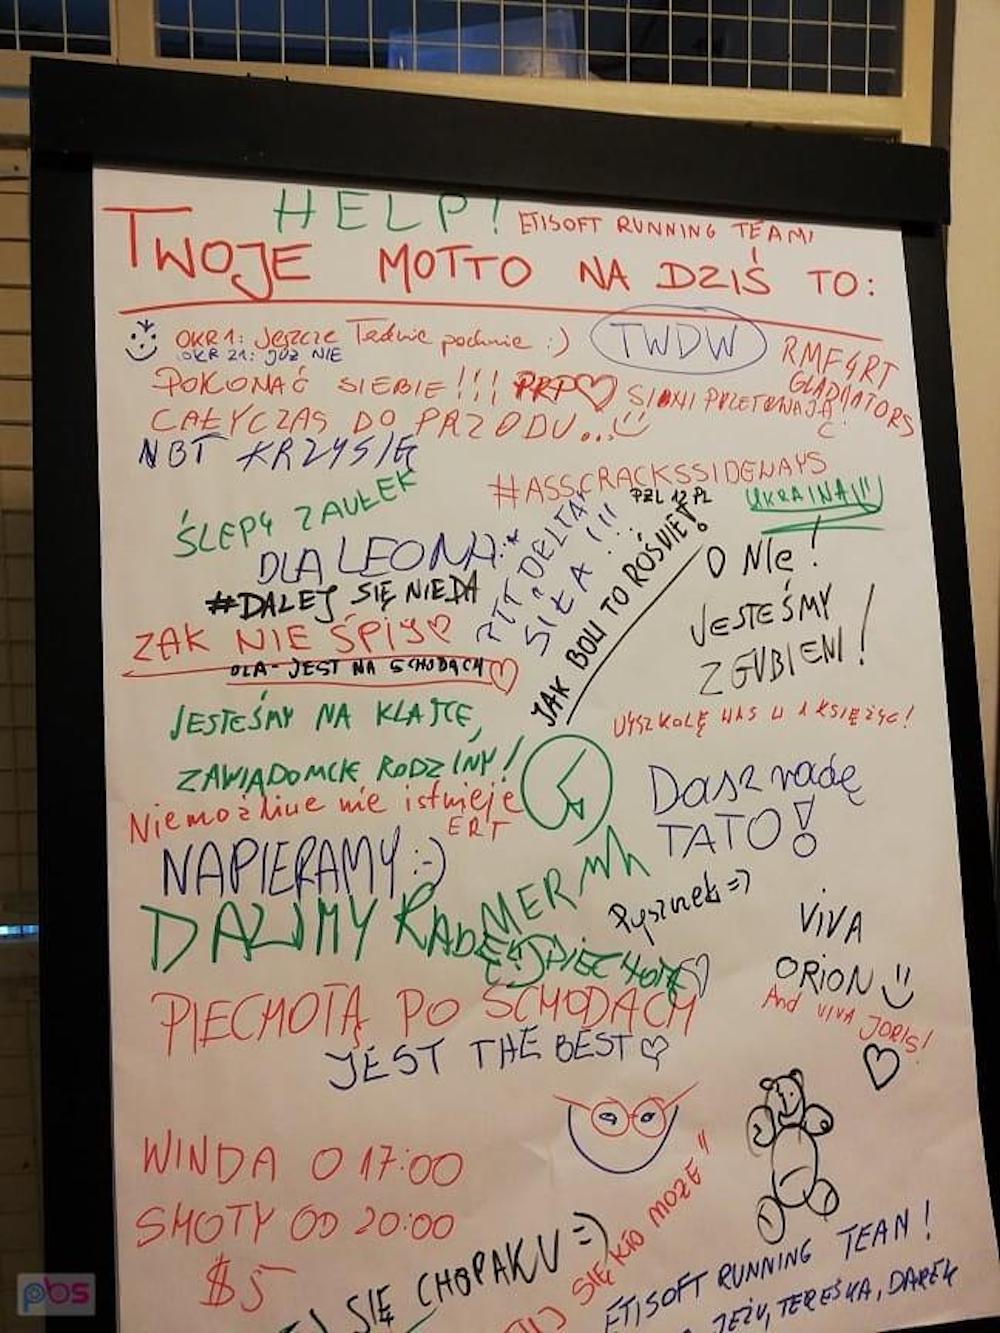 HELP!
ETISOFT RUNNING TEAM!
TWOJE MOTTO NA DZIŚ TO:
OKR 1: Jeszcze :)
OKR 21: JUŻ NIE
TWDW
RMF4RT
GLADIATORS
POKONAĆ SIEBIE!!! PRP♡
CAŁY CZAS DO PRZODU...
NBT KRZYSIĘ
#ASSCRACKSSIDEWAYS
PZL 12 PL
UKRAINA
ŚLEPY ZAUŁEK
DLA LEONA
DELTA
SIŁA!!!
JAK BOLI TO ROŚNIE!
O NIE!
#DALEJ SIĘ NIEDA
JESTEŚMY
ZGUBIENI!
ŻAK NIE ŚPI
DLA - JEST NA SCHODACH ♡
JESTEŚMY NA KLATCE,
WYSZKOLĘ WAS W 1 KSIĘŻYC!
ZAWIADOMCIE RODZINY!
Niemożliwe nie istnieje
ERT
Dasz radę
TATO!
NAPIERAMY :-)
DALIMY RADE
VIVA
ORION
And VIVA JORIS!
♡
PIECHOTĄ PO SCHODACH
JEST THE BEST ♡
WINDA O 17:00
SHOTY OD 20:00
$5
SIĘ CHOPAKU =)
SIĘ KTO MOŻE"
ETISOFT RUNNING TEAM!
TEREŚKA, DAREK
pbs